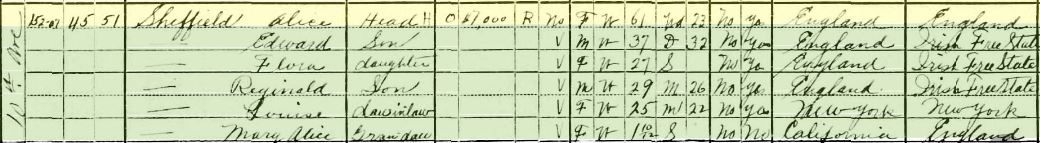 252-07 45 51 Sheffield Alice Head H O 7,000 R No F W 61 Wd 23 No Yes England England
— Edward Son V M W 37 D 32 No Yes England Irish Free State
— Flora daughter V F W 27 S No Yes England Irish Free State
— Reginald Son V M W 29 M 26 No Yes England Irish Free State
— Louise Dawinlaw V F W 25 M 22 No Yes New York New York
— Mary Alice Grandau V F W S No No California England